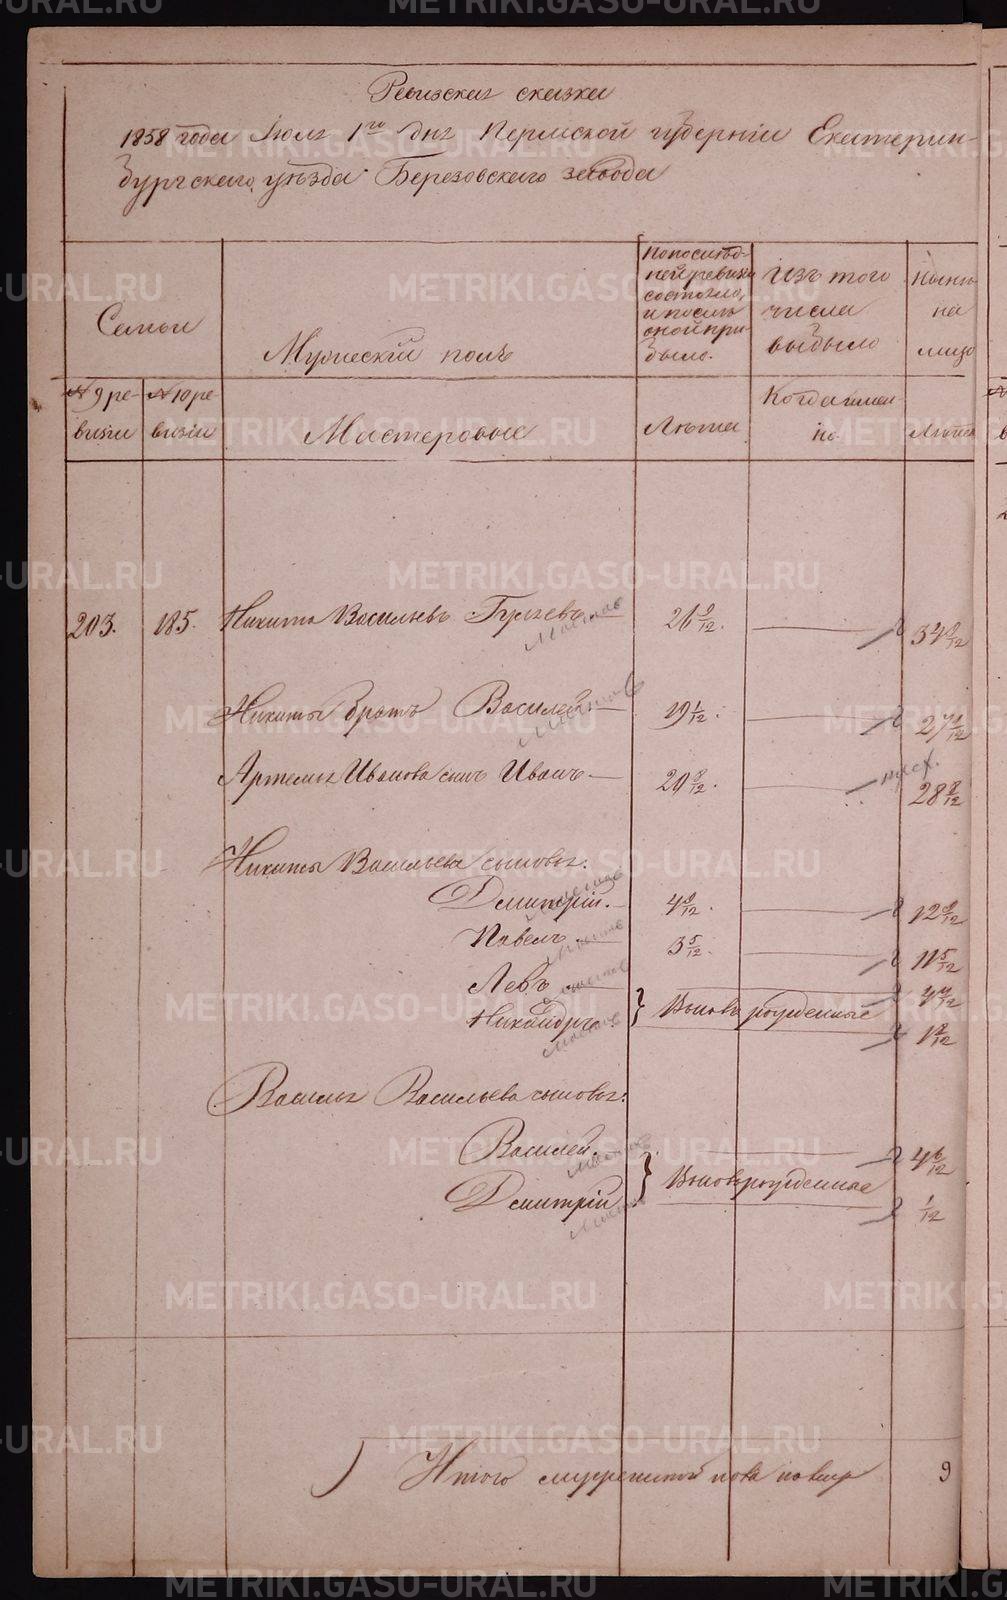 Ревизская сказка
1858 года Июля 1го дня Пермской губернии Екатерин-
бургского уѣзда Березовскаго завода
Семьи
Мужескій полъ
По послѣд-
ней ревизіи
состояло,
и послѣ
оной при-
было.
Изъ того
числа
выбыло
Нынѣ
на
лицо
№ 9 ре-
визіи
№ 10 ре-
визіи
Мастеровые
Лѣта
Когда имен-
но
Лѣта
203. 185. Никита Васильевъ 26 9/12. 34 9/12
Никиты братъ Василей 19 1/12. 27 1/12
Артемья Иванова сынъ Иванъ 20 8/12. 28 8/12
Никиты Васильева сыновья:
Дмитрій. 4 9/12. 12 9/12
Павелъ. 3 5/12. 11 5/12
Левъ
Никандръ } Вновь рожденные
Василья Васильева сыновья:
Василей. 4 6/12
Дмитрій } Вновь рожденные 1/12
Итого мужескаго пола на лицо 9
METRIKI.GASO-URAL.RU